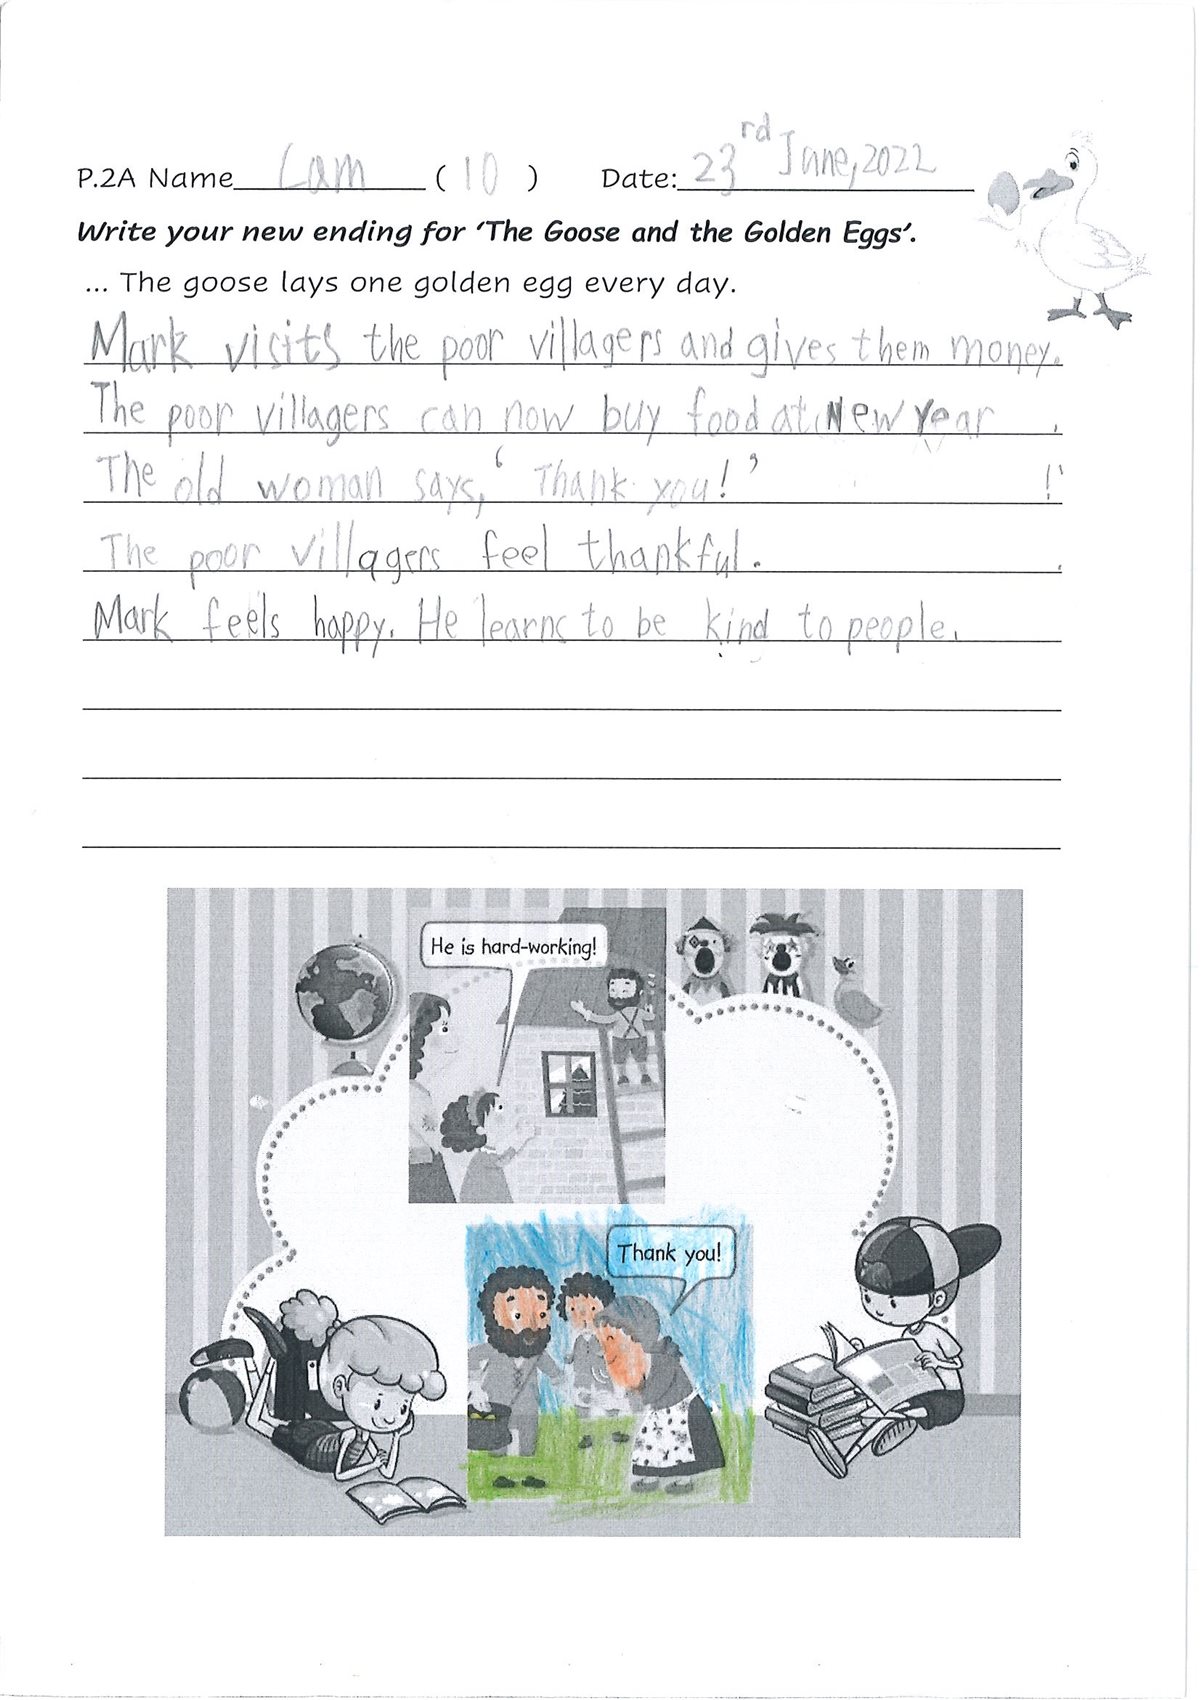 P.2A Name Lam ( 10 ) Date: 23rd June, 2022
Write your new ending for ‘The Goose and the Golden Eggs’.
... The goose lays one golden egg every day.
Mark visits the poor villagers and gives them money.
The poor villagers can now buy food at New Year .
The old woman says, ‘Thank you!’ !’
The poor villagers feel thankful. .
Mark feels happy. He learns to be kind to people.
He is hard-working!
Thank you!